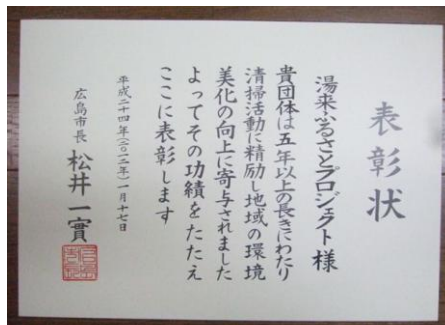 表彰状
湯来ふるさとプロジェクト様
貴団体は五年以上の長きにわたり
清掃活動に精励し地域の環境
美化の向上に寄与されました
よってその功績をたたえ
ここに表彰します
平成二十四年(二〇一二年)一月十七日
広島市長 松井一實